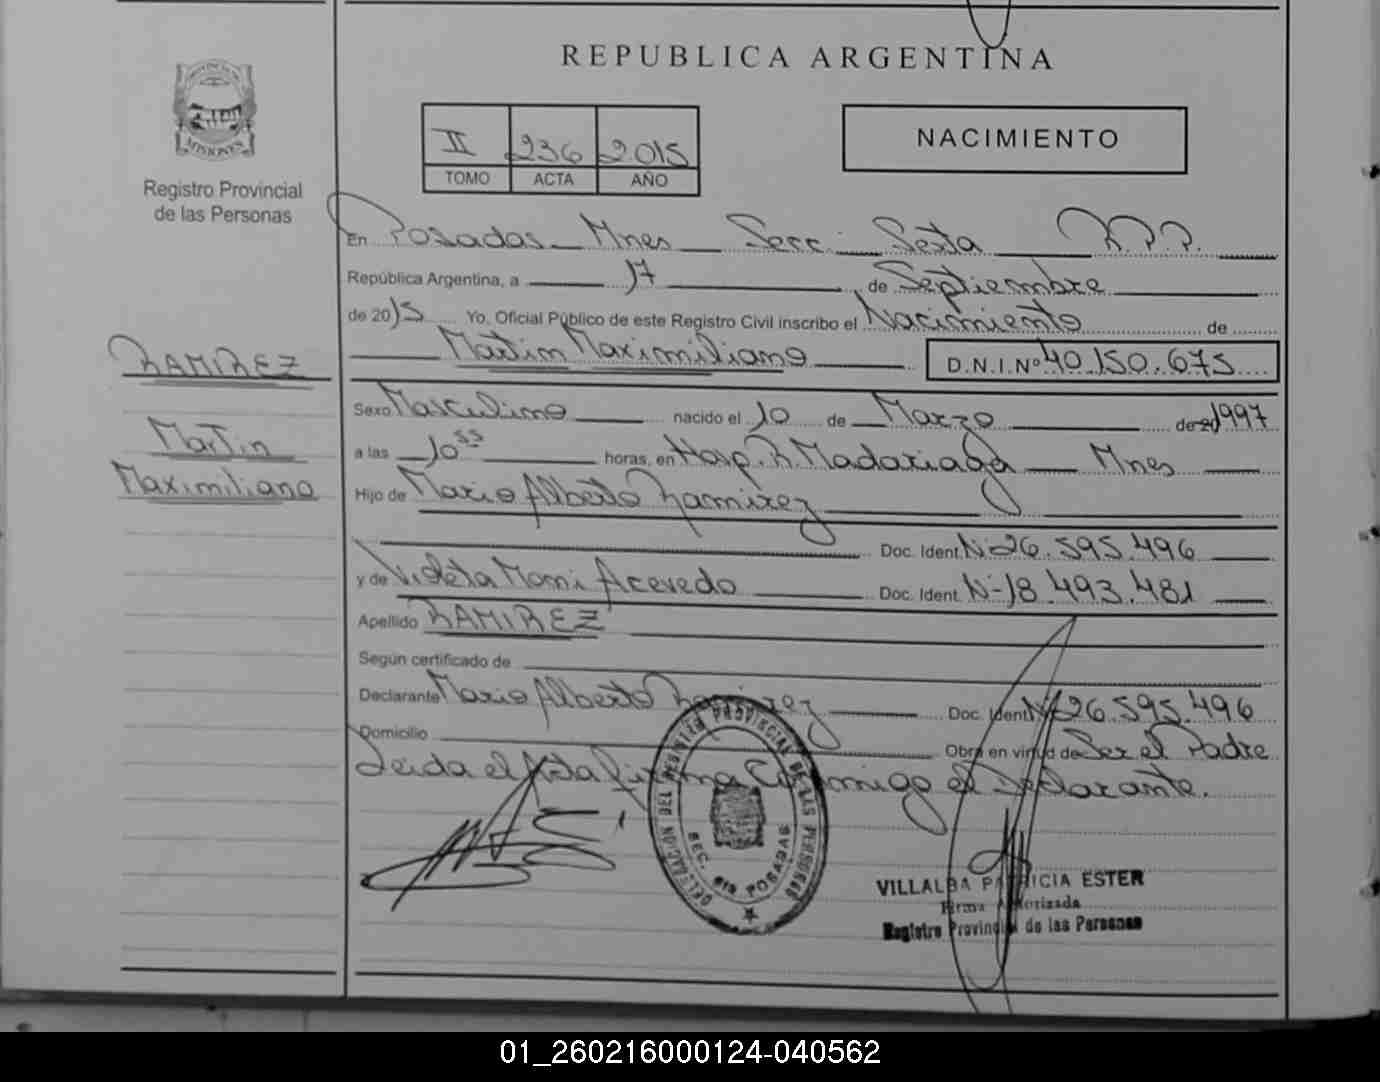 REPUBLICA ARGENTINA
PROVINCIA DE
MISIONES
Registro Provincial
de las Personas
II 236 2015
TOMO ACTA AÑO
NACIMIENTO
En Posadas Mnes Secc. Sexta R.P.P.
República Argentina, a 17 de Septiembre
de 2015 Yo, Oficial Público de este Registro Civil inscribo el Nacimiento de
Martin Maximiliano D.N.I.Nº 40.150.675
RAMIREZ
Martin
Maximiliano
Sexo Masculino nacido el 10 de Marzo de 1997
a las 10 55 horas, en Hosp. R. Madariaga Mnes
Hijo de Mario Alberto Ramirez
Doc. Ident. Nº 26.595.496
y de Violeta Acevedo Doc. Ident. Nº 18.493.481
Apellido RAMIREZ
Según certificado de
Declarante Mario Alberto Ramirez Doc. Ident. Nº 26.595.496
Domicilio Obra en virtud de Ser el Padre
Leida el Acta firma Conmigo el Declarante.
DELEGACION DEL REGISTRO PROVINCIAL DE LAS PERSONAS
SEC. 6ta POSADAS
VILLALBA PATRICIA ESTER
Firma Autorizada
Registro Provincial de las Personas
01_260216000124-040562